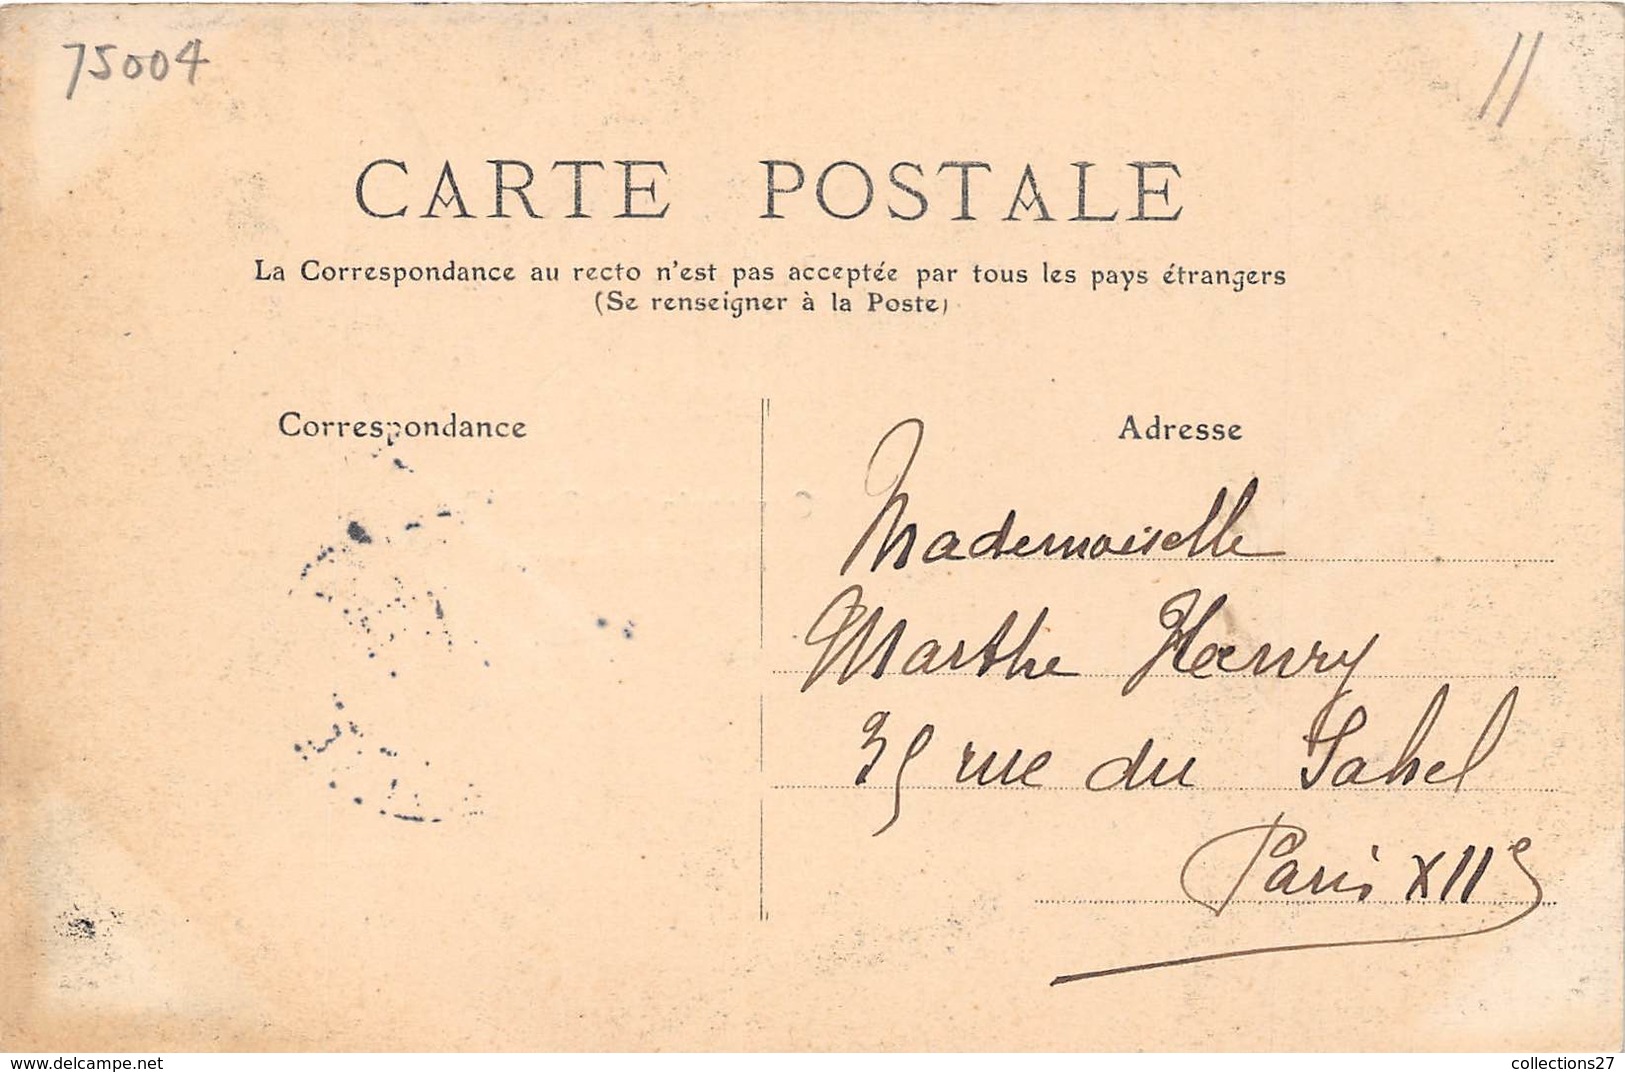 75004
11
CARTE POSTALE
La Correspondance au recto n'est pas acceptée par tous les pays étrangers
(Se renseigner à la Poste)
Correspondance
Adresse
Mademoiselle
Marthe Henry
35 rue du Sahel
Paris XIIe
www.delcampe.net
collections27